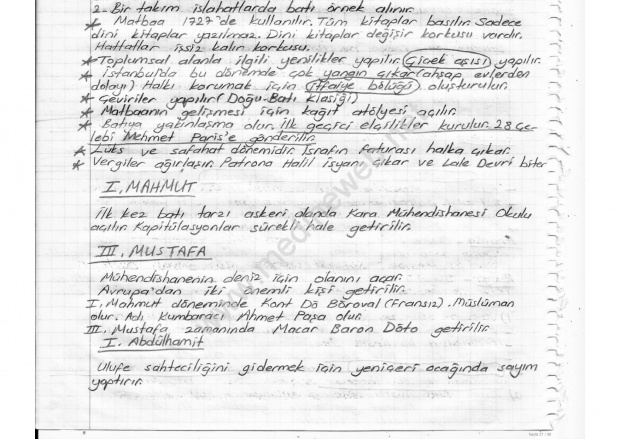 2- Bir takım ıslahatlarda batı örnek alınır.
* Matbaa 1727'de kullanılır. Tüm kitaplar basılır. Sadece
dini kitaplar yazılmaz. Dini kitaplar değişir korkusu vardır.
Hattatlar işsiz kalır korkusu.
* Toplumsal alanla ilgili yenilikler yapılır. Çicek aşısı yapılır.
* İstanbul'da bu dönemde çok yangın çıkar (ahşap evlerden
dolayı) Halkı korumak için (itfaiye bölüğü) oluşturulur.
* Çeviriler yapılır (Doğu-Batı klasiği)
* Matbaanın gelişmesi için kağıt atölyesi açılır.
* Batıya yakınlaşma olur. İlk geçici elçilikler kurulur. 28 Çe-
lebi Mehmet Paris'e gönderilir.
* Lüks ve safahat dönemidir. İsrafın faturası halka çıkar.
* Vergiler ağırlaşır. Patrona Halil isyanı çıkar ve Lale Devri biter
I. MAHMUT
İlk kez batı tarzı askeri alanda Kara Mühendishanesi Okulu
açılır. Kapitülasyonlar sürekli hale getirilir.
III. MUSTAFA
Mühendishanenin deniz için olanını açar.
Avrupa'dan iki önemli kişi getirilir.
I. Mahmut döneminde Kont Dö Böroval (Fransız). Müslüman
olur. Adı Kumbaracı Ahmet Paşa olur.
III. Mustafa zamanında Macar Baron Döto getirilir.
I. Abdülhamit
Ulufe sahteciliğini gidermek için yeniçeri ocağında sayım
yaptırır.